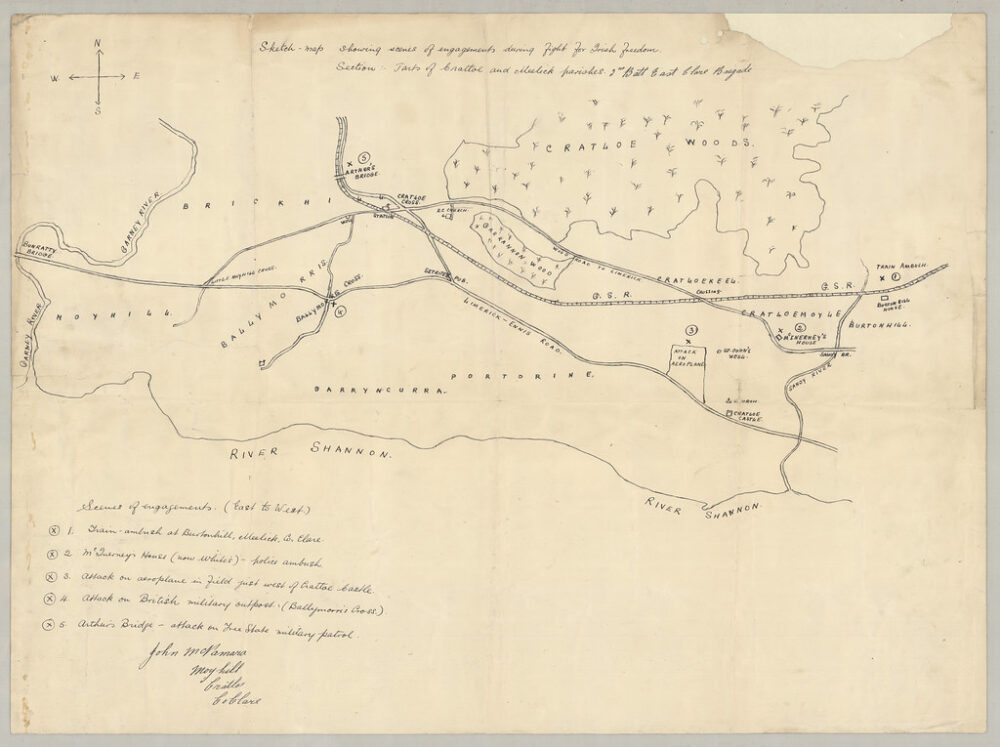 Sketch-map showing scenes of engagements during Fight For Irish Freedom.
Section:- Parts of Cratloe and Meelick parishes. 2nd Batt East Clare Brigade
N
W E
S
CRATLOE WOODS.
5
ARTHUR'S
BRIDGE.
GARNEY RIVER
BRICKHI
CRATLOE
CROSS.
STATION
R.C. CHURCH
GARRANNON WOOD
WOOD ROAD TO LIMERICK
BUNRATTY
BRIDGE.
LITTLE MOYHILL CROSS.
BALLYMORRIS
BALLYMORRIS CROSS.
4
PUB.
CRATLOEKEEL.
CROSSING
G.S.R.
G.S.R.
TRAIN AMBUSH.
1
BURTON HILL
HOUSE.
MOYHILL.
GARNEY RIVER
LIMERICK-ENNIS ROAD.
CRATLOEMOYLE
BURTONHILL.
2
McINERNEY'S
HOUSE
3
ATTACK
ON
AEROPLANE
ST. JOHN'S
WELL.
SANDY BR.
SANDY RIVER
PORTDRINE.
GARRYNCURRA.
CHURCH
CRATLOE
CASTLE.
RIVER SHANNON.
RIVER SHANNON.
Scenes of engagements. (East to West)
1. Train-ambush at Burtonhill, Meelick, Co. Clare.
2. McInerney's House (now White's) - police ambush
3. Attack on aeroplane in Field just west of Cratloe Castle.
4. Attack on British military outpost. (Ballymorris Cross.)
5. Arthur's Bridge - attack on Free State military patrol
John McNamara
Moyhill
Cratloe
Co Clare